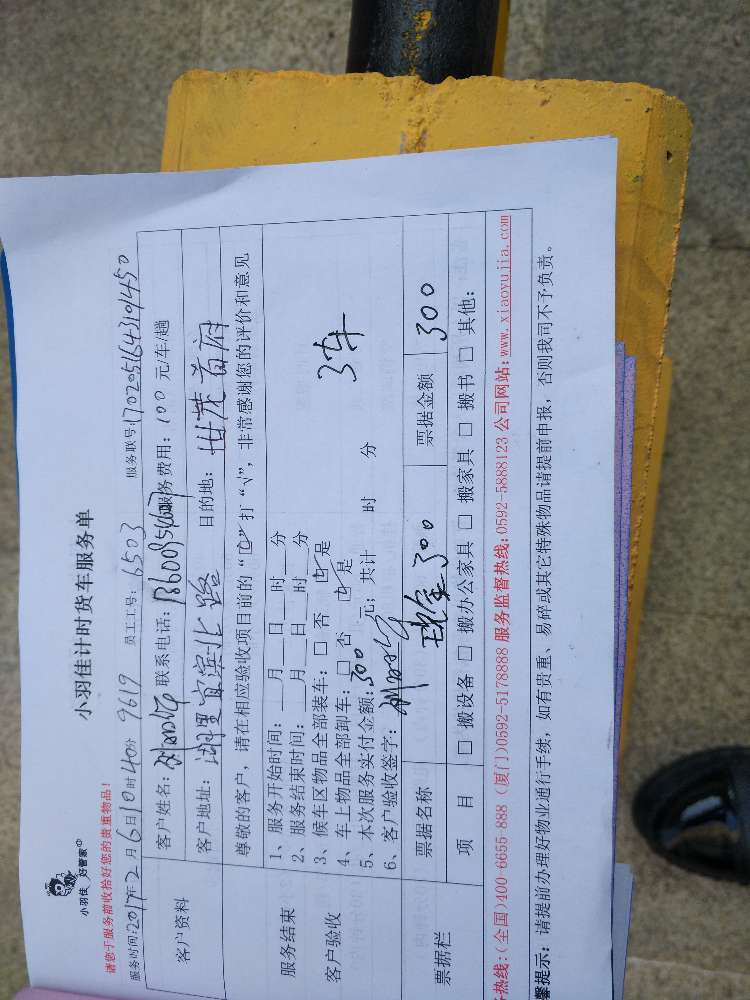 小羽佳 好管家
小羽佳计时货车服务单
请您于服务前收拾好您的贵重物品!
服务时间:2017年2月6日10时40分 9619 员工工号:6503 服务联号:170205164310450
客户资料
客户姓名: 联系电话: 服务费用:100元/车/趟
客户地址:湖里宜宾北路 目的地:世茂首府
尊敬的客户,请在相应验收项目前的“□”打“√”,非常感谢您的评价和意见
服务结束
客户验收
1、服务开始时间:___月___日___时___分
2、服务结束时间:___月___日___时___分
3、候车区物品全部装车:□ 否 ☑ 是
4、车上物品全部卸车:□ 否 ☑ 是 3车
5、本次服务实付金额:300元;共计 时 分
6、客户验收签字:
票据栏
票据名称 现金300 票据金额 300
项 目 □ 搬设备 □ 搬办公家具 □ 搬家具 □ 搬书 □ 其他:
热线:(全国)400-6655-888 (厦门)0592-5178888 服务监督热线:0592-5888123 公司网站:www.xiaoyujia.com
馨提示:请提前办理好物业通行手续,如有贵重、易碎或其它特殊物品请提前申报,否则我司不予负责。